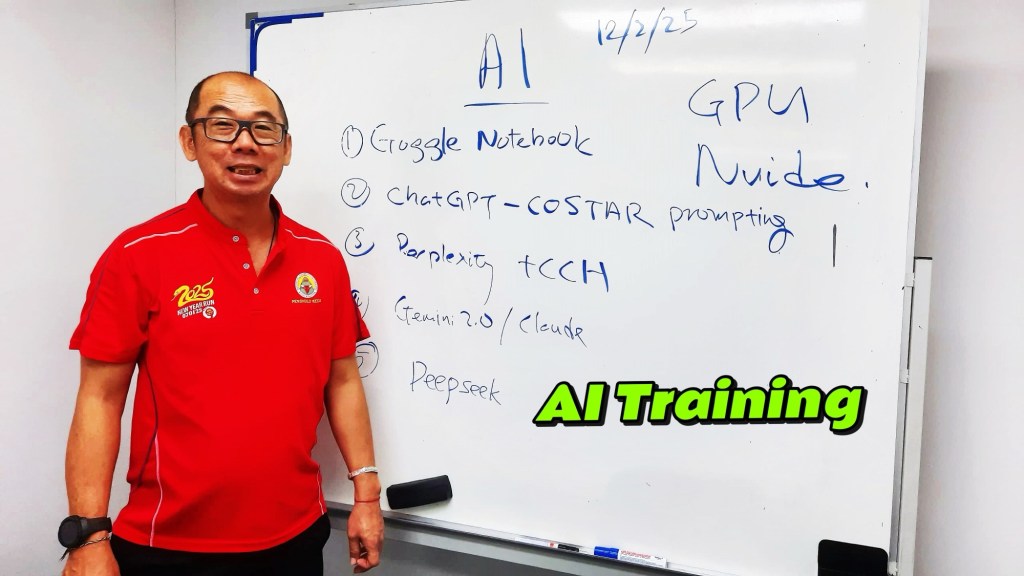 AI
12/2/25
GPU
Nvide.
① Goggle Notebook
② ChatGPT - COSTAR prompting
③ Perplexity + CCH
Gemini 2.0 / Claude
5 Deepseek
AI Training
2025
NEW YEAR RUN